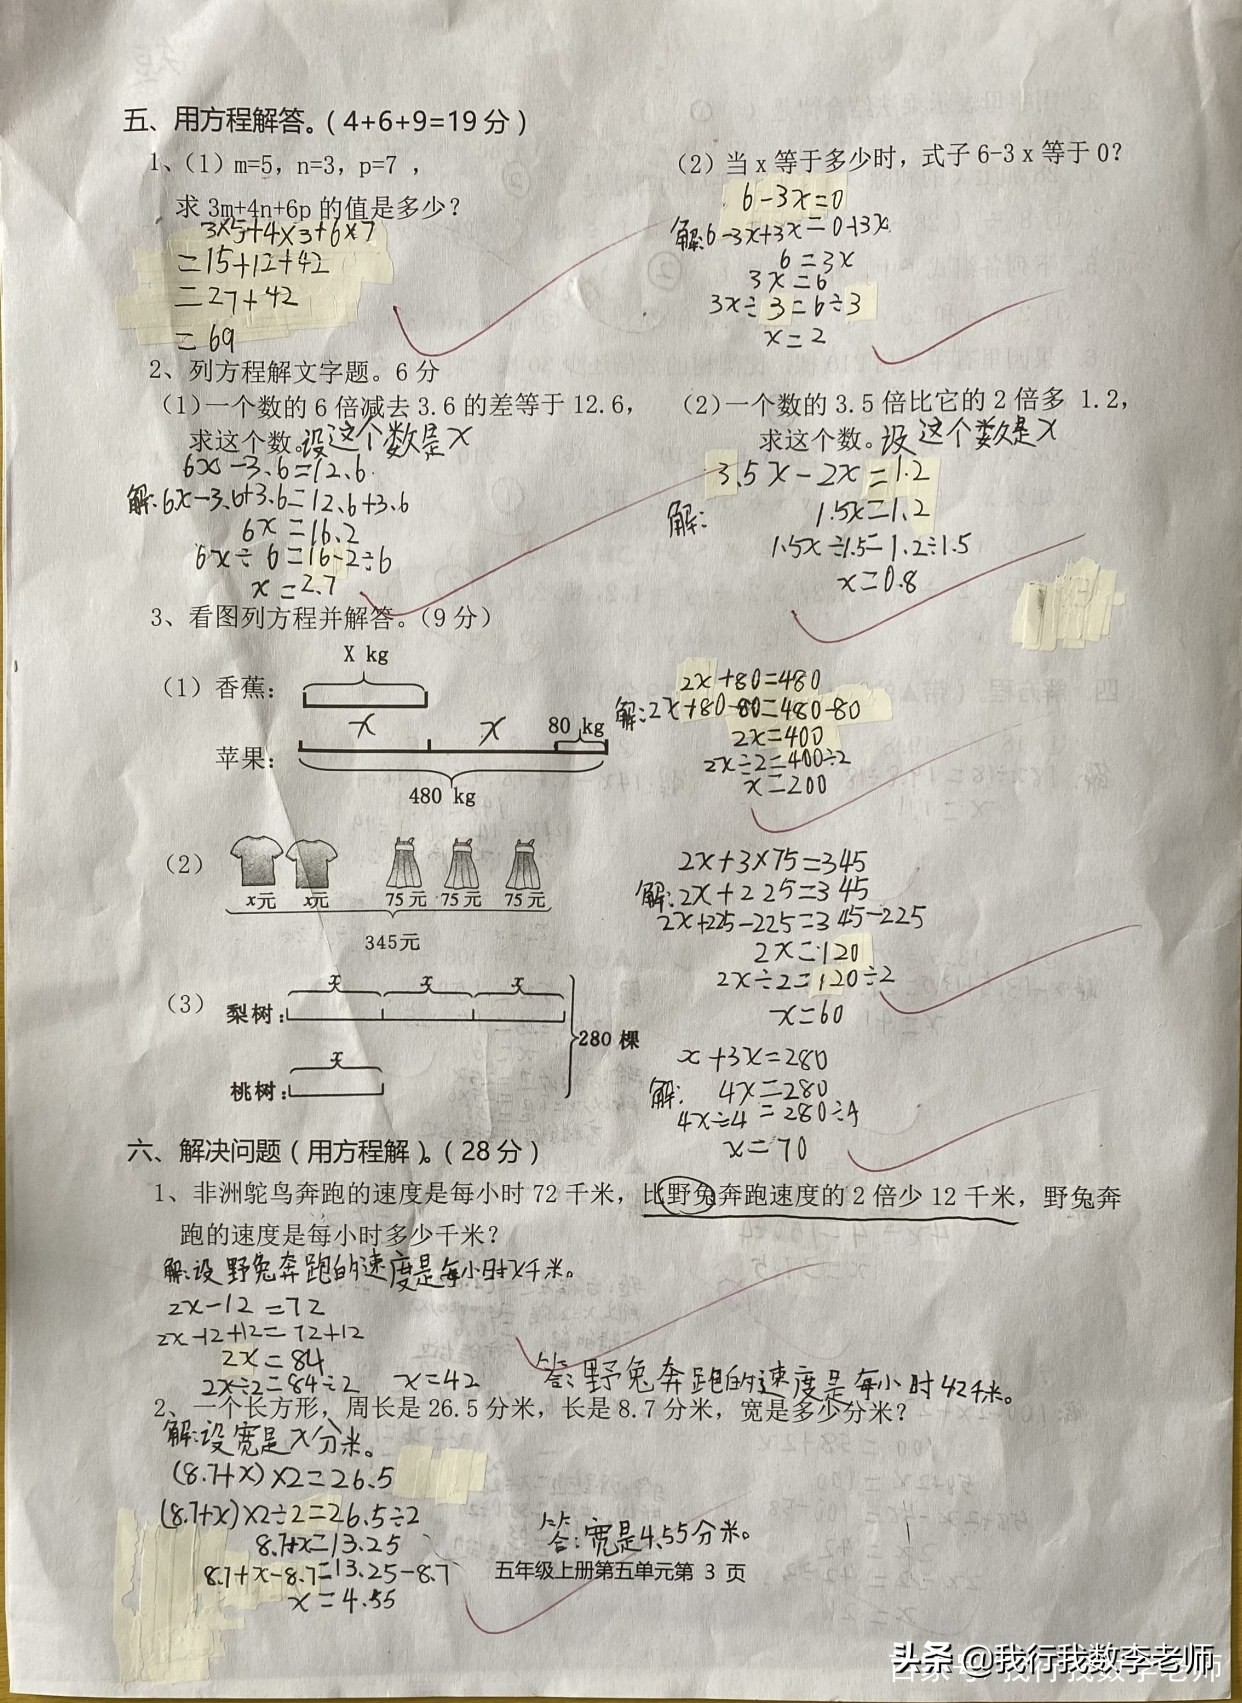 五、用方程解答。(4+6+9=19分)
1、(1) m=5，n=3，p=7 ，
求3m+4n+6p的值是多少？
3×5+4×3+6×7
=15+12+42
=27+42
=69
(2) 当x等于多少时，式子6-3x等于0？
6-3x=0
解:6-3x+3x=0+3x
6=3x
3x=6
3x÷3=6÷3
x=2
2、列方程解文字题。6分
(1)一个数的6倍减去3.6的差等于12.6，
求这个数。设这个数是x
6x-3.6=12.6
解:6x-3.6+3.6=12.6+3.6
6x=16.2
6x÷6=16.2÷6
x=2.7
(2)一个数的3.5倍比它的2倍多 1.2，
求这个数。设这个数是x
3.5x-2x=1.2
解:
1.5x=1.2
1.5x÷1.5=1.2÷1.5
x=0.8
3、看图列方程并解答。(9分)
X kg
(1) 香蕉：
x x 80 kg
苹果：
480 kg
2x+80=480
解:2x+80-80=480-80
2x=400
2x÷2=400÷2
x=200
(2)
x元 x元 75元 75元 75元
345元
2x+3×75=345
解:2x+225=345
2x+225-225=345-225
2x=120
2x÷2=120÷2
x=60
(3)
x x x
梨树：
280棵
x
桃树：
x+3x=280
解: 4x=280
4x÷4=280÷4
x=70
六、解决问题(用方程解)。(28分)
1、非洲鸵鸟奔跑的速度是每小时72千米，比野兔奔跑速度的2倍少12千米，野兔奔
跑的速度是每小时多少千米？
解:设野兔奔跑的速度是每小时x千米。
2x-12=72
2x-12+12=72+12
2x=84
2x÷2=84÷2 x=42
答:野兔奔跑的速度是每小时42千米。
2、一个长方形，周长是26.5分米，长是8.7分米，宽是多少分米？
解:设宽是x分米。
(8.7+x)×2=26.5
(8.7+x)×2÷2=26.5÷2
8.7+x=13.25
8.7+x-8.7=13.25-8.7
x=4.55
答:宽是4.55分米。
五年级上册第五单元第 3 页
头条 @我行我数李老师